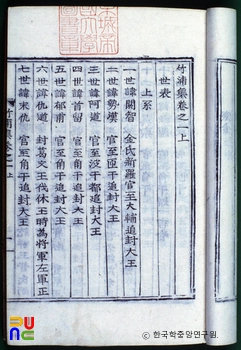 竹浦集卷之一上
世表
上系
一世諱閼智 金氏新羅官至大輔追封大王
二世諱勢漢 官至匝干追封大王
三世諱阿道 官至 干都追封大王
四世諱首留 官至角干追封大王
五世諱郁甫 官至角干追封大王
六世諱仇道 封葛文王伐休王時為將軍左軍正
七世諱末仇 官至角干追封大王
竹浦集卷之一上
ⓒ 한국학중앙연구원.